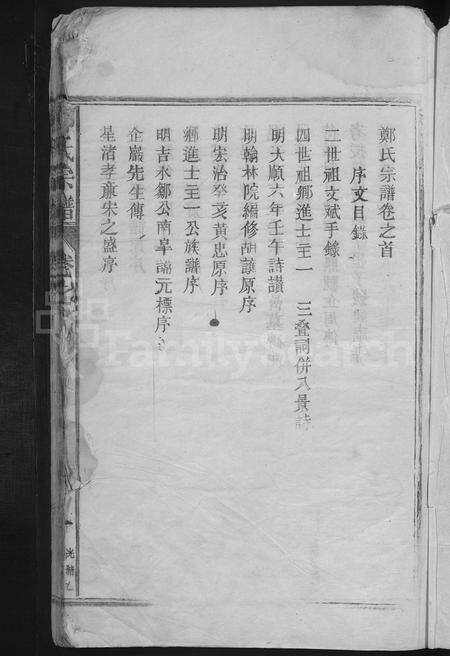 鄭氏宗譜卷之首
序文目錄
二世祖文斌手錄
四世祖鄉進士主一 三疊詞併八景詩
明大順六年壬午詩讃
明翰林院編修胡謙原序
明宏治癸亥黃忠原序
鄉進士主一公族譜序
明吉水鄒公南臯諱元標序
企巖先生傳
星渚孝廉宋之盛序
氏宗譜
卷之
光緒
FamilySearch